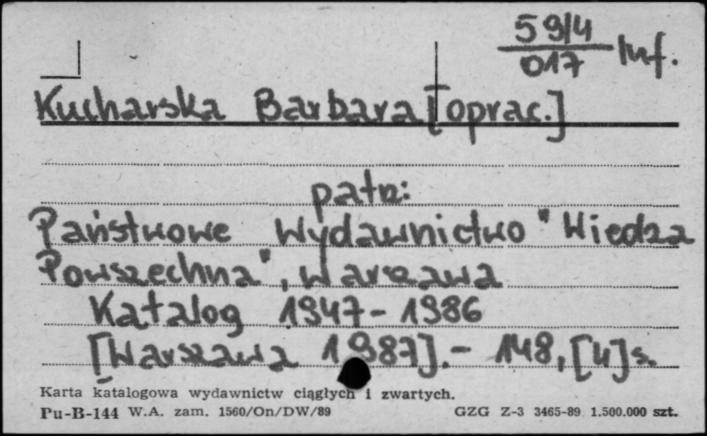 59/4
017 Inf.
Kucharska Barbara [oprac.]
patrz:
Państwowe Wydawnictwo "Wiedza
Powszechna", Warszawa
Katalog 1947-1986
[Warszawa 1987].- 148, [4] s.
Karta katalogowa wydawnictw ciągłych i zwartych.
Pu-B-144 W.A. zam. 1560/On/DW/89 GZG Z-3 3465-89 1.500.000 szt.